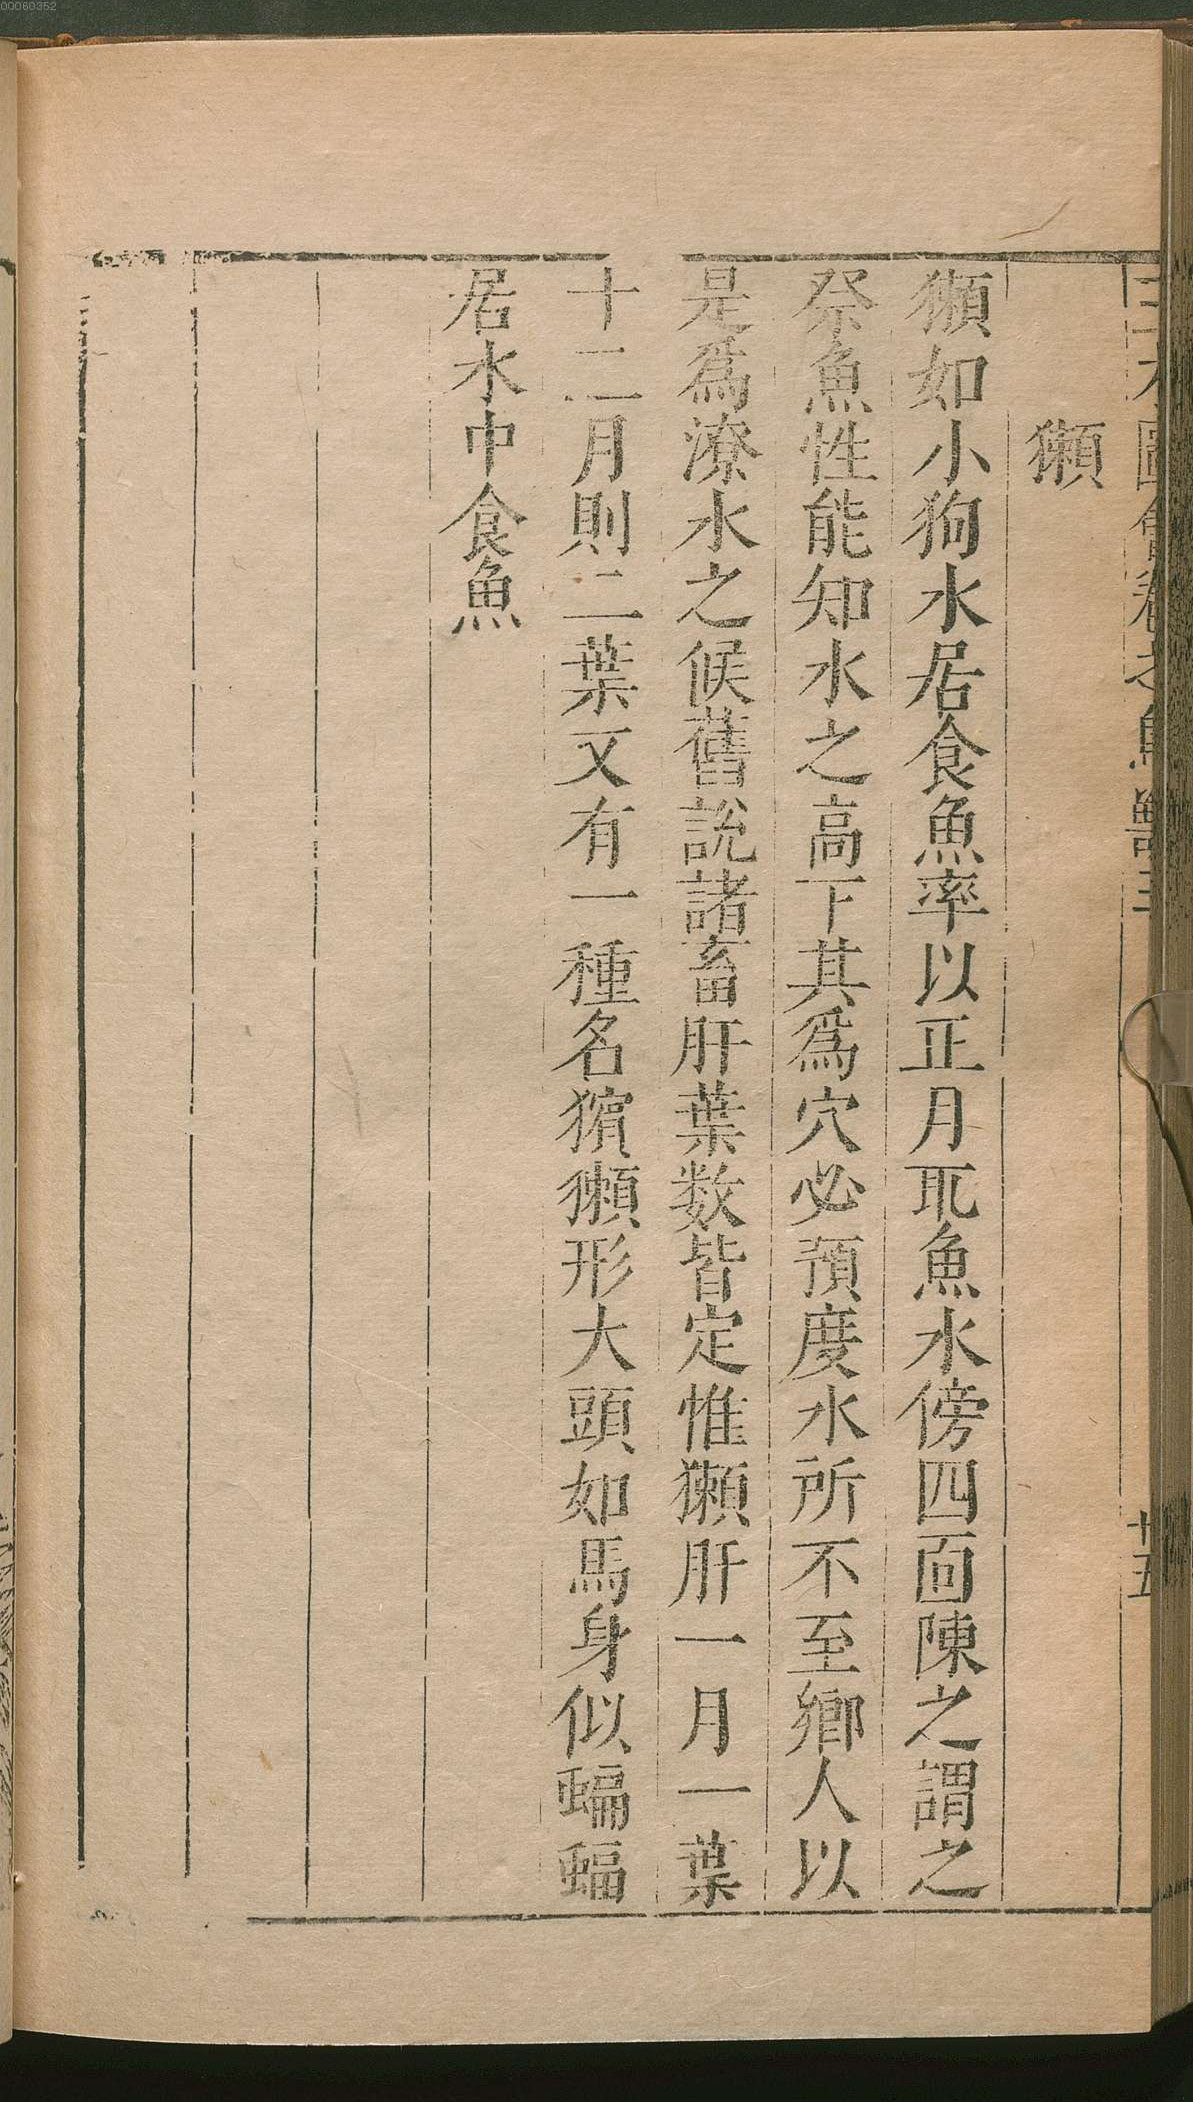 00060352
獺
獺如小狗水居食魚率以正月取魚水傍四面陳之謂之
祭魚性能知水之高下其爲穴必預度水所不至鄉人以
是爲潦水之候舊說諸畜肝葉数皆定惟獺肝一月一葉
十二月則二葉又有一種名獱獺形大頭如馬身似蝙蝠
居水中食魚
廿五